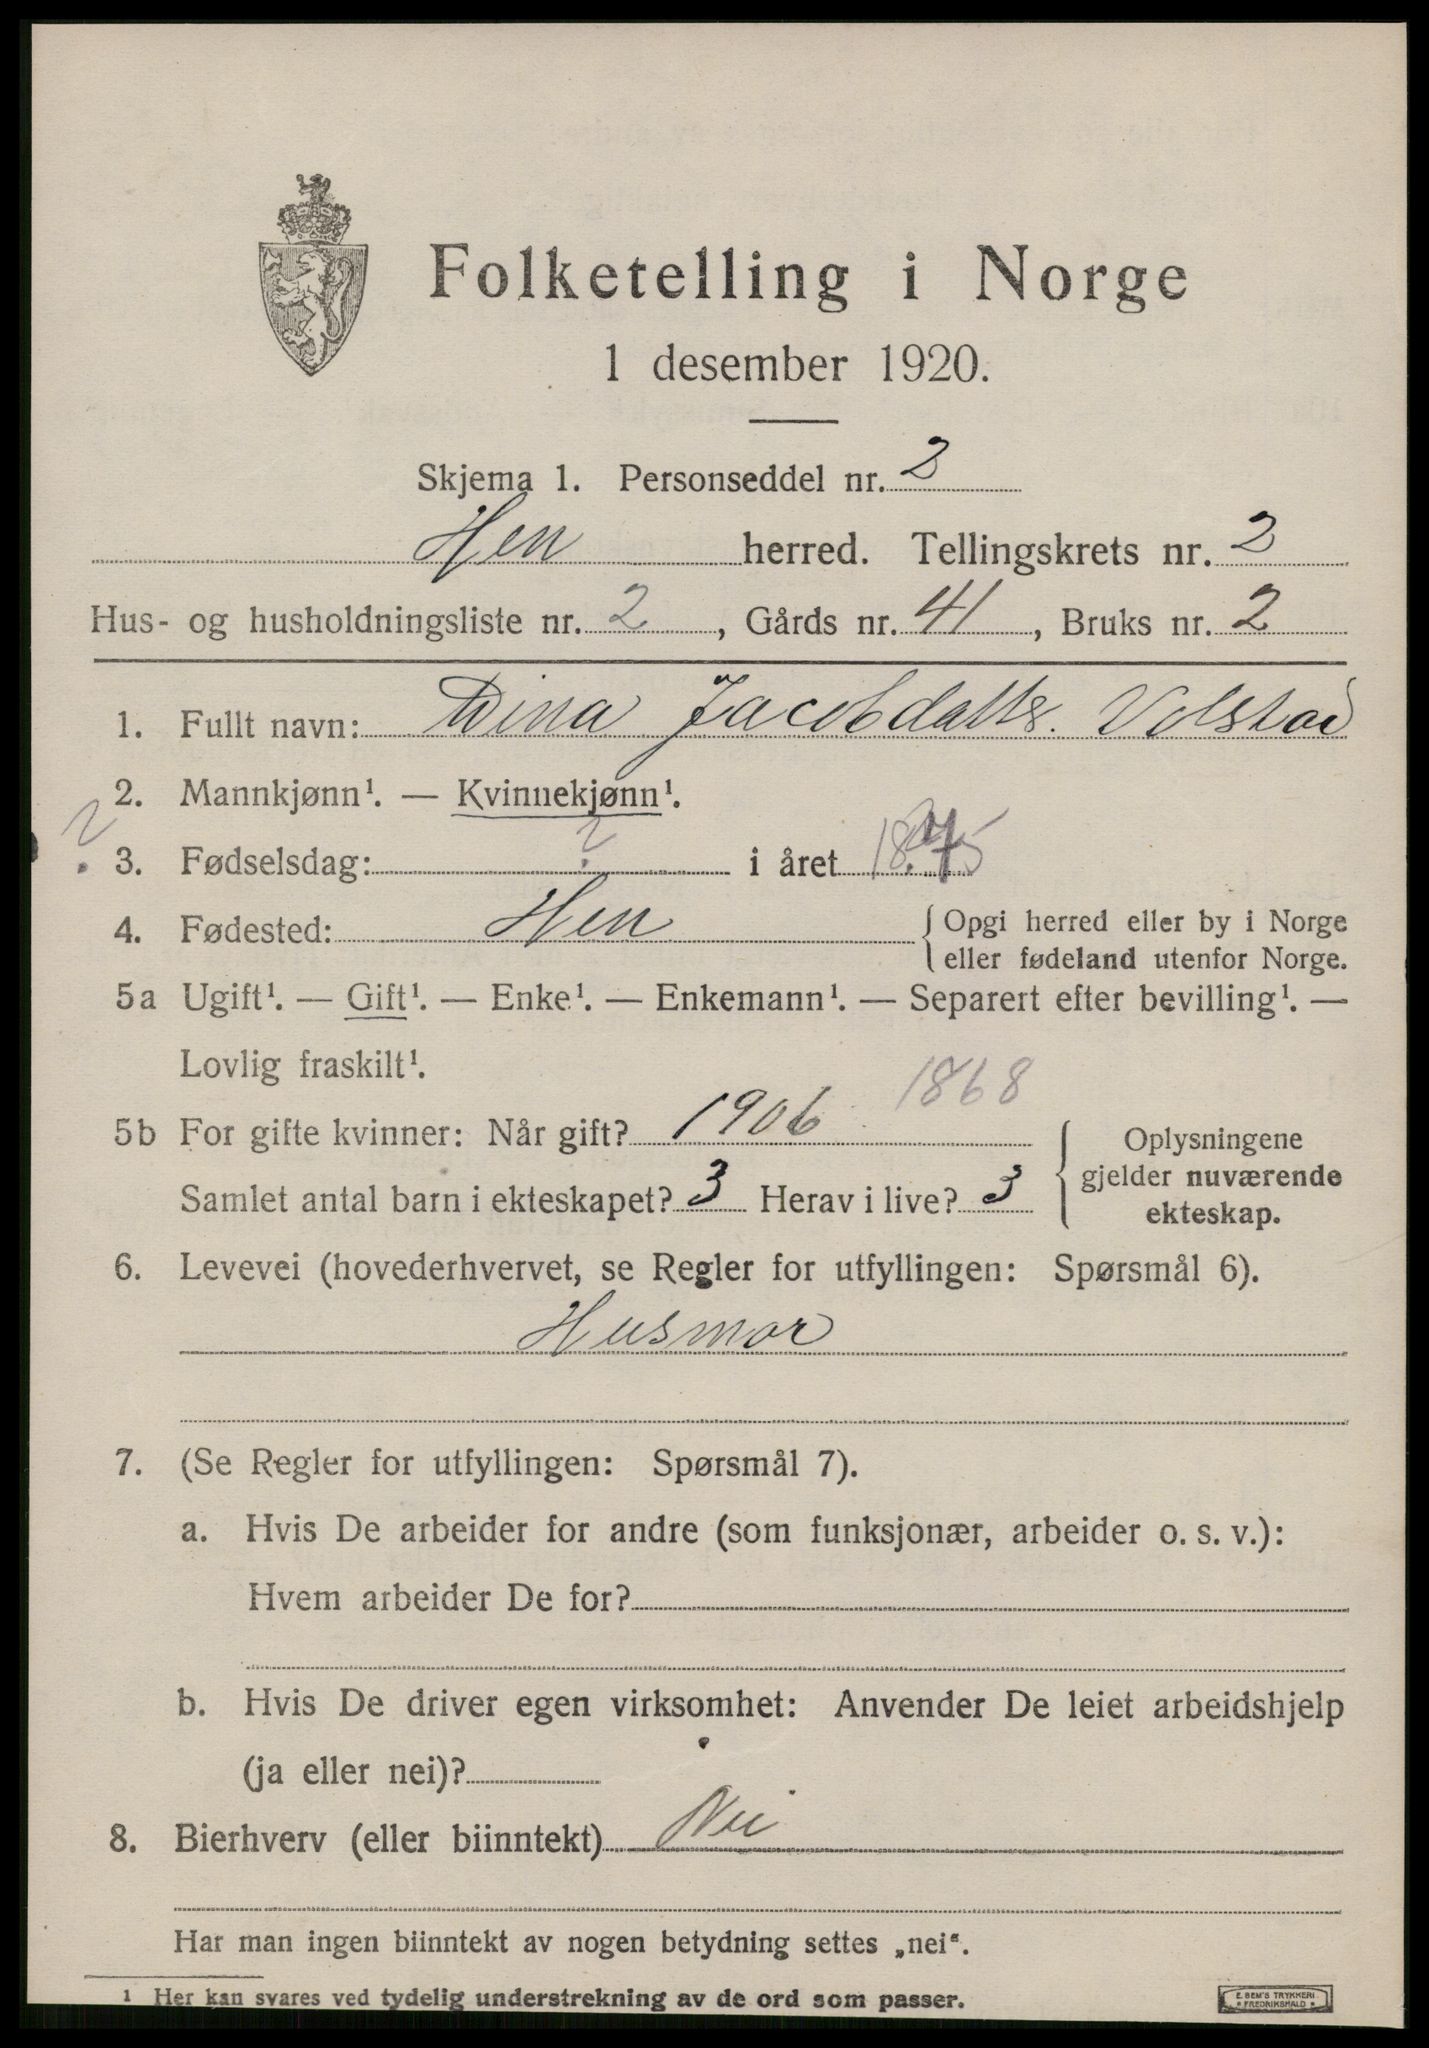 Folketelling i Norge
1 desember 1920.
Skjema 1. Personseddel nr. 2
Hen herred. Tellingskrets nr. 2
Hus- og husholdningsliste nr. 2, Gårds nr. 41, Bruks nr. 2
1. Fullt navn: Dina Jacobdatter. Volstad
2. Mannkjønn¹. — Kvinnekjønn¹.
? 3. Fødselsdag: ? i året 1875
4. Fødested: Hen { Opgi herred eller by i Norge
eller fødeland utenfor Norge.
5a Ugift¹. — Gift¹. — Enke¹. — Enkemann¹. — Separert efter bevilling¹. —
Lovlig fraskilt¹.
1868
5b For gifte kvinner: Når gift? 1906 { Oplysningene
gjelder nuværende
ekteskap.
Samlet antal barn i ekteskapet? 3 Herav i live? 3
6. Levevei (hovederhvervet, se Regler for utfyllingen: Spørsmål 6).
Husmor
7. (Se Regler for utfyllingen: Spørsmål 7).
a. Hvis De arbeider for andre (som funksjonær, arbeider o. s. v.):
Hvem arbeider De for?
b. Hvis De driver egen virksomhet: Anvender De leiet arbeidshjelp
(ja eller nei)?
8. Bierhverv (eller biinntekt) Nei
Har man ingen biinntekt av nogen betydning settes „nei“.
¹ Her kan svares ved tydelig understrekning av de ord som passer.
E. SEM'S TRYKKERI
* FREDRIKSHALD *